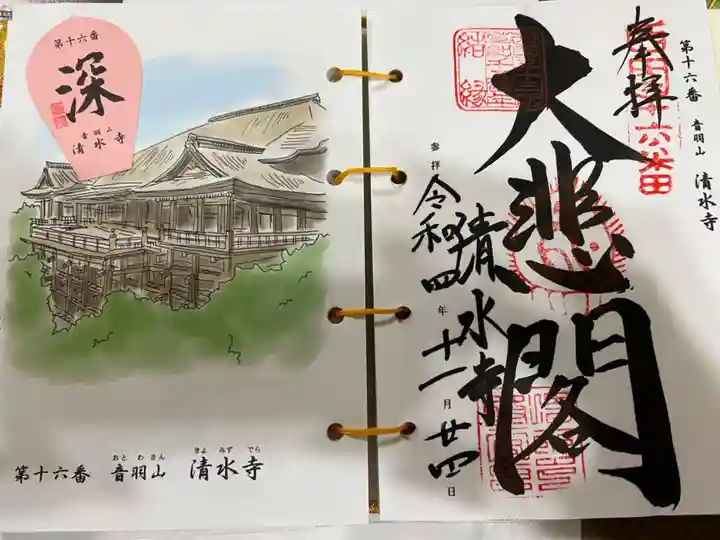 第十六番
深
音羽山
清水寺
第十六番 音羽山 清水寺
おとわさん きよみずでら
第十六番 音羽山 清水寺
奉拝
大悲閣
清水寺
参拝 令和四年十一月廿四日
結縁